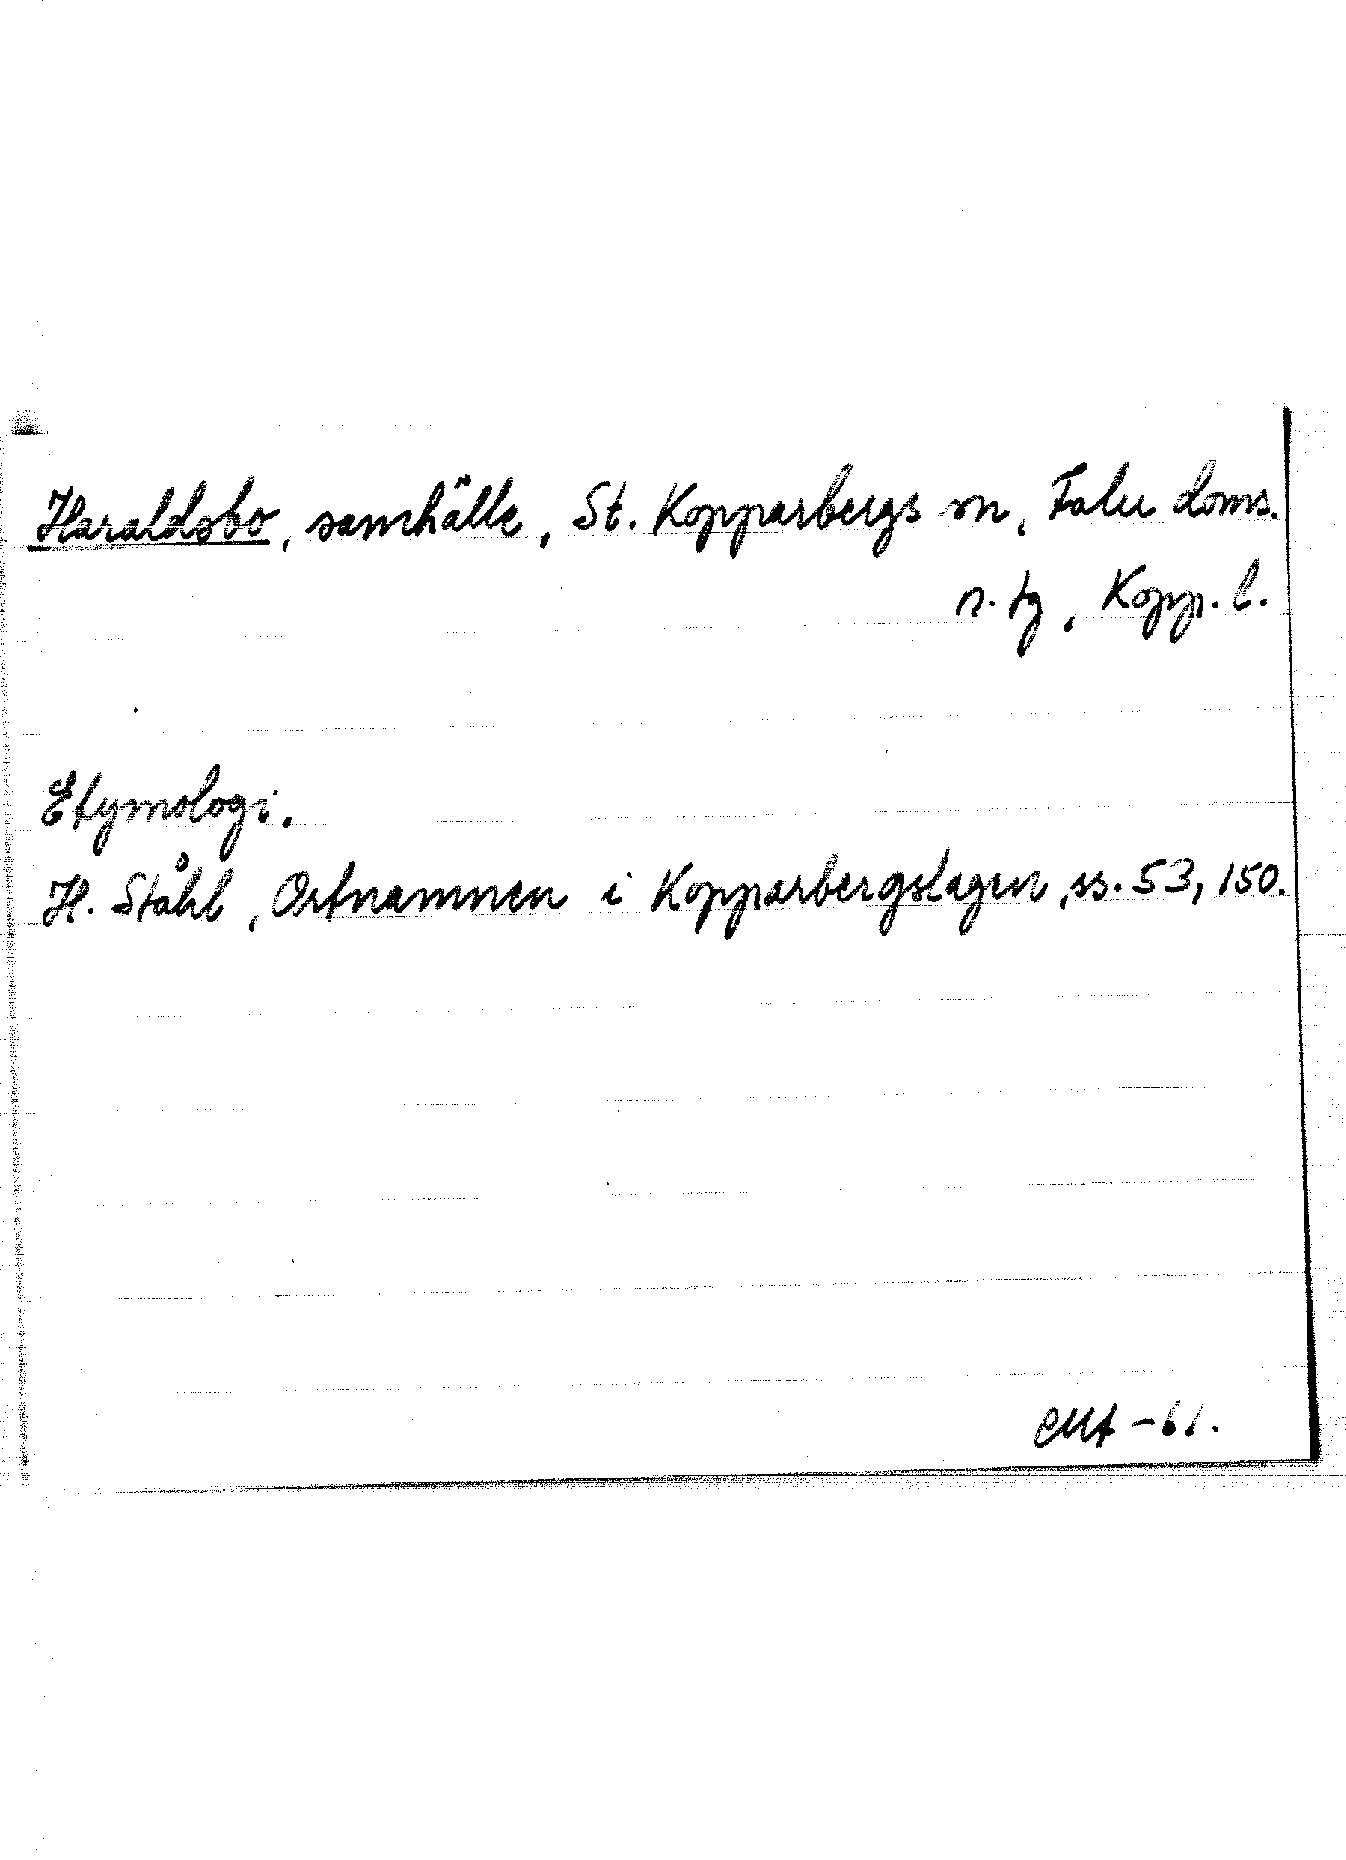 Haraldsbo, samhälle, St. Kopparbergs sn, Falu doms.
n. tg, Kopp. l.
Etymologi.
H. Ståhl, Ortnamnen i Kopparbergslagen, ss. 53, 150.
EMA -61.